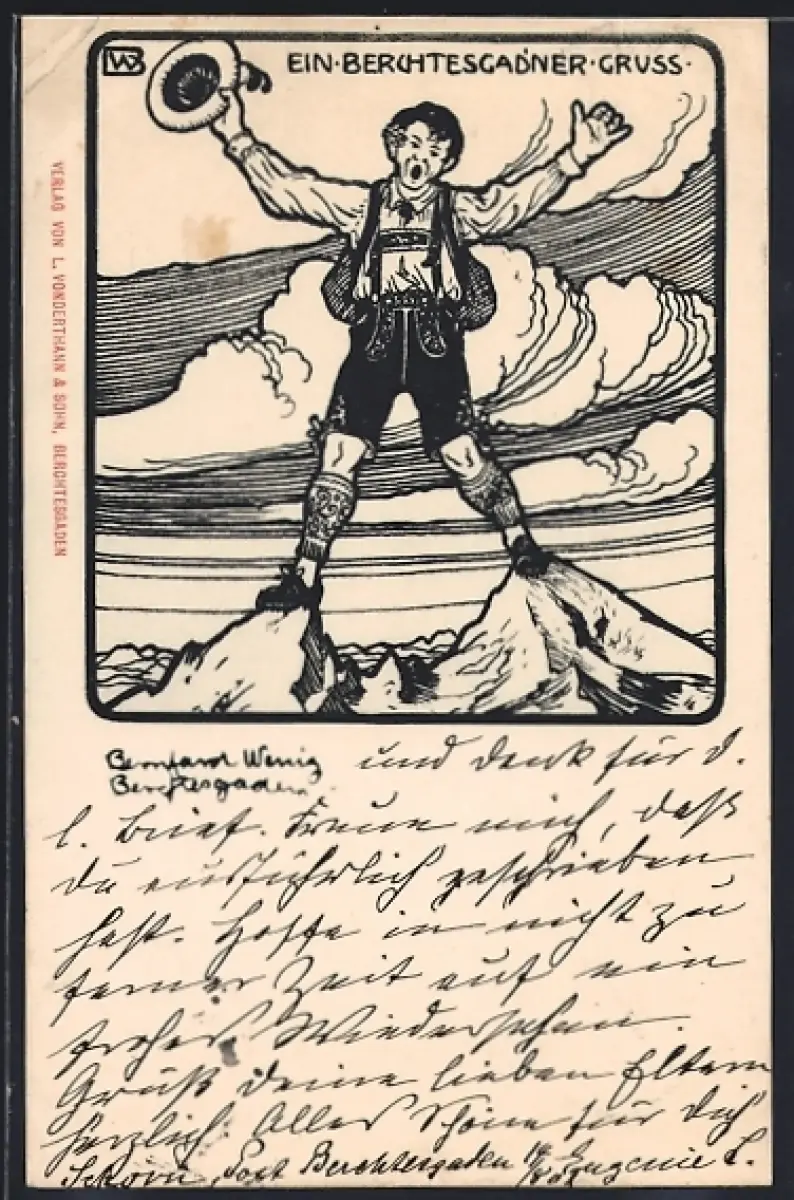 WB
EIN · BERCHTESGAD'NER · GRUSS ·
VERLAG VON L. VONDERTHANN & SOHN, BERCHTESGADEN
Bernhard Wenig
Berchtesgaden.
und Dank für d.
l. Brief. Freue mich, daß
du ausführlich geschrieben
hast. Hoffe in nicht zu
ferner Zeit auf ein
frohes Wiedersehen.
Grüße deine lieben Eltern
herzlich. Alles Schöne für dich
Post Berchtesgaden Eugenie L.